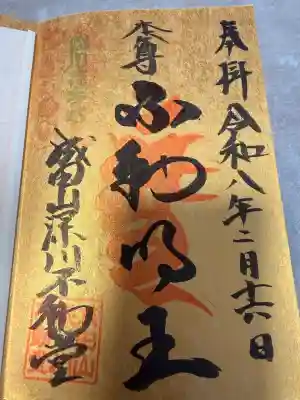 奉拝 令和八年二月十六日
本尊 不動明王
成田山深川不動堂